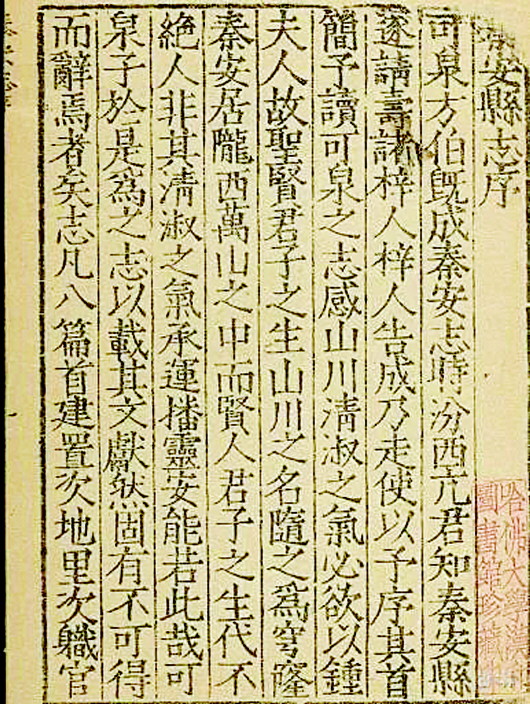 秦安縣志序
可泉方伯旣成秦安志時汾西亢君知秦安縣
遂請壽諸梓人梓人告成乃走使以予序其首
簡予讀可泉之志感山川淸淑之氣必欲以鍾
夫人故聖賢君子之生山川之名隨之爲穹窿
秦安居隴西萬山之中而賢人君子之生代不
絶人非其淸淑之氣承運播靈安能若此哉可
泉子於是爲之志以載其文獻然固有不可得
而辭焉者矣志凡八篇首建置次地里次軄官
哈佛大學漢
圖書館珍藏